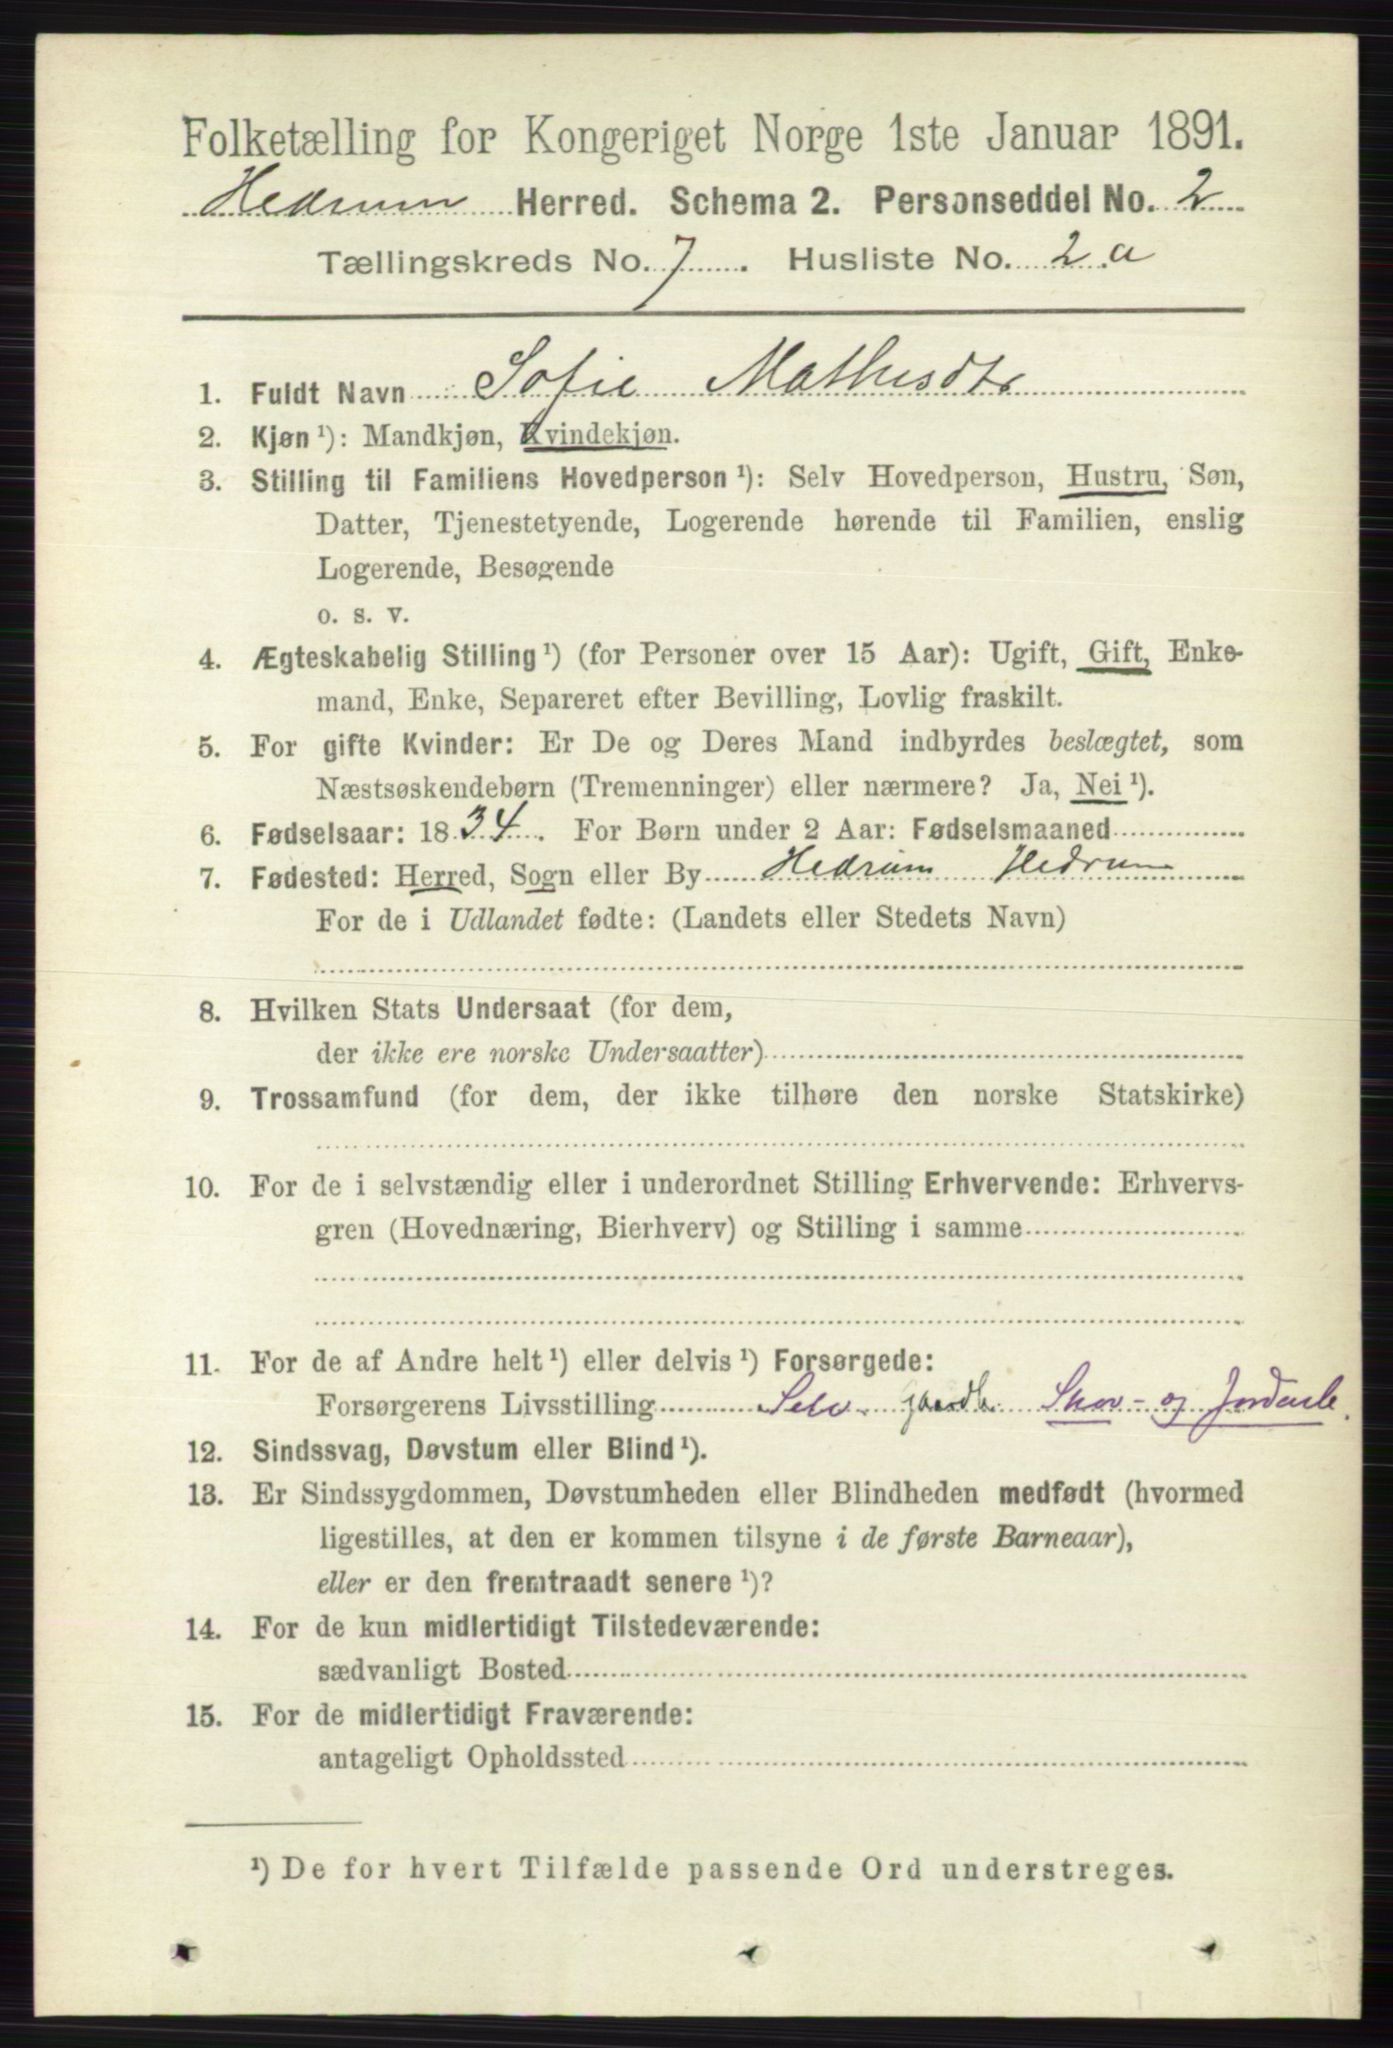 Folketælling for Kongeriget Norge 1ste Januar 1891.
Hedrum Herred. Schema 2. Personseddel No. 2
Tællingskreds No. 7. Husliste No. 2 a
1. Fuldt Navn Sofie Mathisdtr
2. Kjøn ¹): Mandkjøn, Kvindekjøn.
3. Stilling til Familiens Hovedperson ¹): Selv Hovedperson, Hustru, Søn,
Datter, Tjenestetyende, Logerende hørende til Familien, enslig
Logerende, Besøgende
o. s. v.
4. Ægteskabelig Stilling ¹) (for Personer over 15 Aar): Ugift, Gift, Enke-
mand, Enke, Separeret efter Bevilling, Lovlig fraskilt.
5. For gifte Kvinder: Er De og Deres Mand indbyrdes beslægtet, som
Næstsøskendebørn (Tremenninger) eller nærmere? Ja, Nei ¹).
6. Fødselsaar: 1834. For Børn under 2 Aar: Fødselsmaaned
7. Fødested: Herred, Sogn eller By Hedrum Hedrum
For de i Udlandet fødte: (Landets eller Stedets Navn)
8. Hvilken Stats Undersaat (for dem,
der ikke ere norske Undersaatter)
9. Trossamfund (for dem, der ikke tilhøre den norske Statskirke)
10. For de i selvstændig eller i underordnet Stilling Erhvervende: Erhvervs-
gren (Hovednæring, Bierhverv) og Stilling i samme
11. For de af Andre helt ¹) eller delvis ¹) Forsørgede:
Forsørgerens Livsstilling Selv. gaardb. Skov- og Jordeule.
12. Sindssvag, Døvstum eller Blind ¹).
13. Er Sindssygdommen, Døvstumheden eller Blindheden medfødt (hvormed
ligestilles, at den er kommen tilsyne i de første Barneaar),
eller er den fremtraadt senere ¹)?
14. For de kun midlertidigt Tilstedeværende:
sædvanligt Bosted
15. For de midlertidigt Fraværende:
antageligt Opholdssted
¹) De for hvert Tilfælde passende Ord understreges.